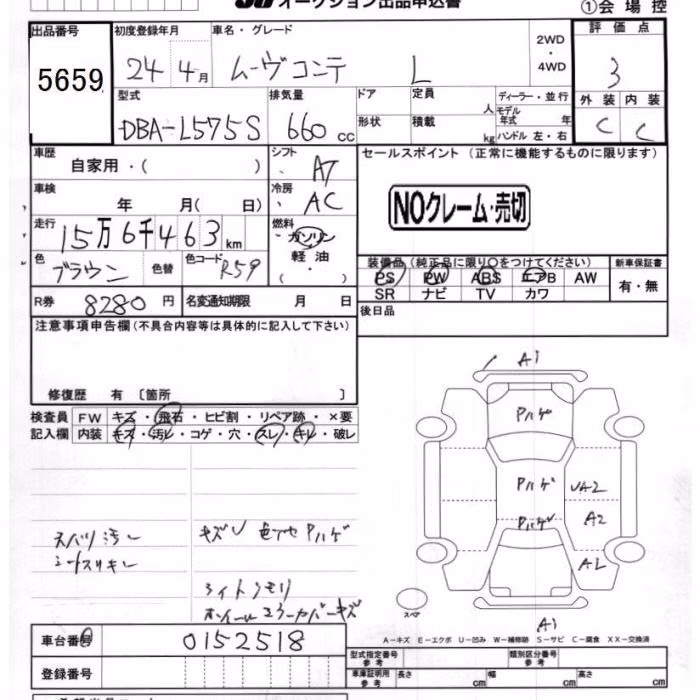 オークション出品申込書
①会場控
出品番号 初度登録年月 車名・グレード 評価点
5659 24年4月 ムーヴコンテ L 2WD・4WD 3
型式 排気量 ドア 定員 人 ディーラー・並行 外装 内装
DBA-L575S 660cc 形状 積載 kg モデル年式 年 ハンドル 左・右 C C
車歴 自家用・( ) シフト AT セールスポイント(正常に機能するものに限ります)
車検 年 月( 日) 冷房 AC NOクレーム・売切
走行 15万6千463km 燃料 ガソリン・軽油・
色 ブラウン 色替 色コード R59 装備品(純正品に限り○をつけてください) 新車保証書
PS PW ABS エアB AW 有・無
SR ナビ TV カワ
R券 8280円 名変通知期限 月 日 後日品
注意事項申告欄(不具合内容等は具体的に記入して下さい)
修復歴 有〔箇所 〕
検査員 FW キズ・飛石・ヒビ割・リペア跡・×要
記入欄 内装 キズ・汚レ・コゲ・穴・スレ・キレ・破レ
A1
Pハゲ
Pハゲ UA2
Pハゲ A2
AL
スペア
A1
シートスリキレ
キズU 色アセ Pハゲ
ライトクモリ
A−キズ E−エクボ U−凹み W−補修跡 S−サビ C−腐食 XX−交換済
車台番号 0152518
型式指定番号 参考 類別区分番号 参考
登録番号 車庫証明用 参考 長さ cm 幅 cm 高さ cm